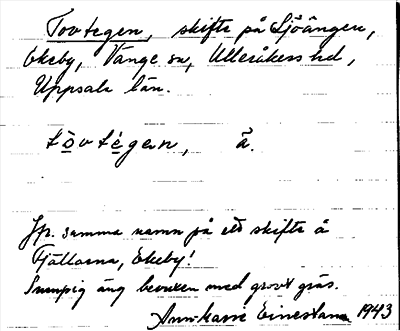 Tovtegen, skifte på Sjöängen,
Ekeby, Vänge sn, Ulleråkers hd,
Uppsala län.
tòvtégen, ā.
Jfr. samma namn på ett skifte å
Fjällarna, Ekeby!
Sumpig äng bevuxen med grovt gräs.
Ann-Marie 1943